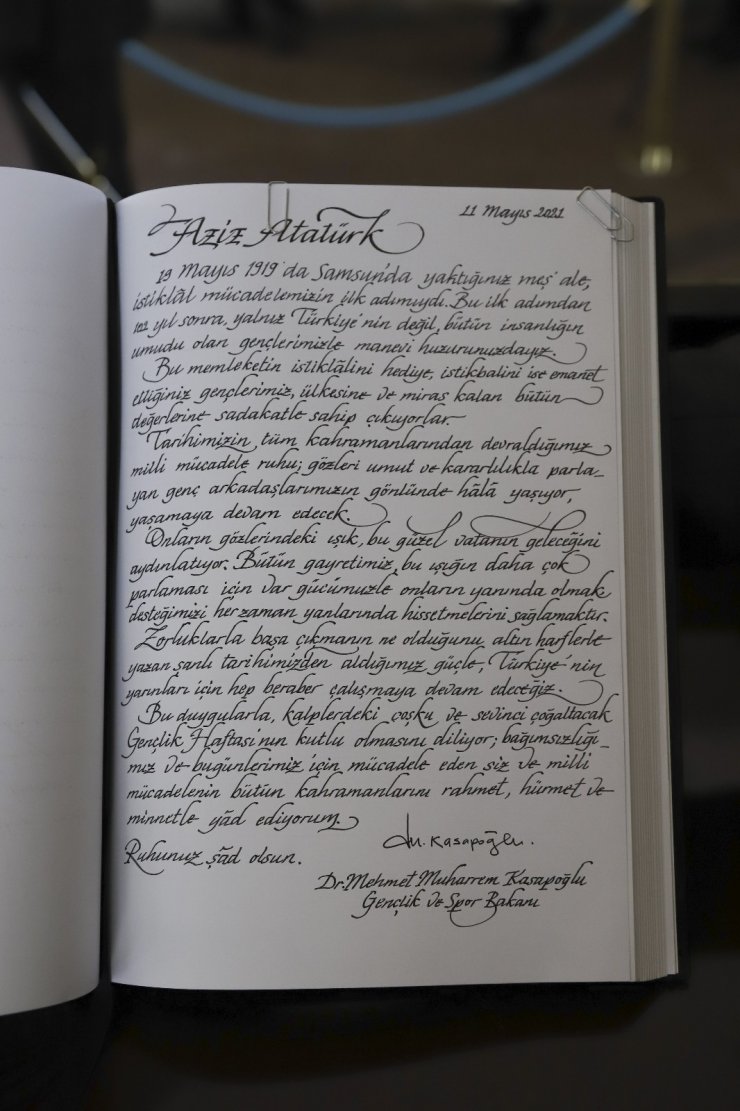 11 Mayıs 2021
Aziz Atatürk
19 Mayıs 1919'da Samsun'da yaktığınız meş'ale,
istiklâl mücadelemizin ilk adımıydı. Bu ilk adımdan
102 yıl sonra, yalnız Türkiye'nin değil, bütün insanlığın
umudu olan gençlerimizle manevi huzurunuzdayız.
Bu memleketin istiklâlini hediye, istikbalini ise emanet
ettiğiniz gençlerimiz, ülkesine ve miras kalan bütün
değerlerine sadakatle sahip çıkıyorlar.
Tarihimizin tüm kahramanlarından devraldığımız
milli mücadele ruhu; gözleri umut ve kararlılıkla parla-
yan genç arkadaşlarımızın gönlünde hâlâ yaşıyor,
yaşamaya devam edecek.
Onların gözlerindeki ışık, bu güzel vatanın geleceğini
aydınlatıyor. Bütün gayretimiz, bu ışığın daha çok
parlaması için var gücümüzle onların yanında olmak
desteğimizi her zaman yanlarında hissetmelerini sağlamaktır.
Zorluklarla başa çıkmanın ne olduğunu altın harflerle
yazan şanlı tarihimizden aldığımız güçle, Türkiye'nin
yarınları için hep beraber çalışmaya devam edeceğiz.
Bu duygularla, kalplerdeki coşku ve sevinci çoğaltacak
Gençlik Haftası'nın kutlu olmasını diliyor; bağımsızlığı-
mız ve bugünlerimiz için mücadele eden siz ve milli
mücadelenin bütün kahramanlarını rahmet, hürmet ve
minnetle yâd ediyorum.
Ruhunuz şâd olsun.
M. Kasapoğlu.
Dr. Mehmet Muharrem Kasapoğlu
Gençlik ve Spor Bakanı